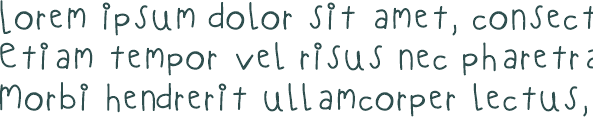 Lorem ipsum dolor sit amet, consect
Etiam tempor vel risus nec pharetra
Morbi hendrerit ullamcorper lectus,